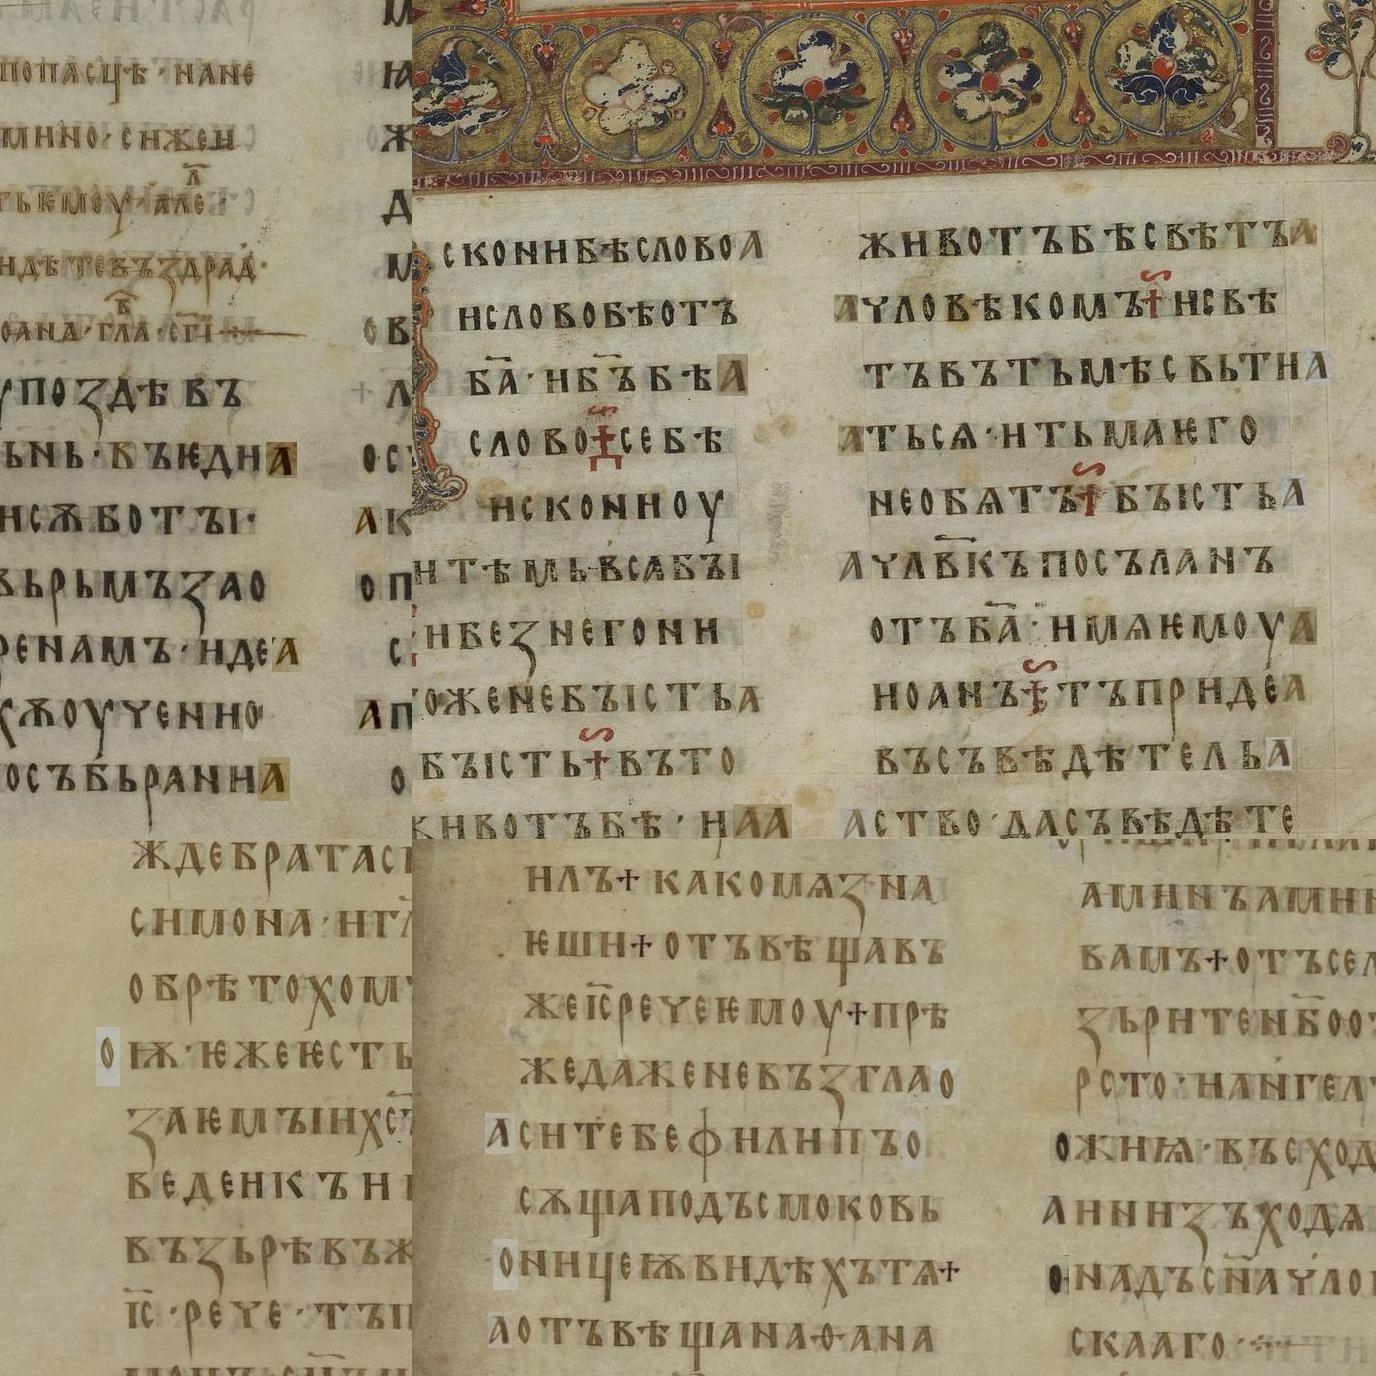 попасцѣ · нане
мнно · снжен
ьѥмоу · але л
ндѣтевъздрад ·
оана · гла · сгі
упоздѣвъ
ьнь · въѥдна
нсѫботъі ·
вьрьмъзао
ренамъ · идеа
хѫоученно
осъбьранна
М
Ж
Д
М
ов
+ л
ос
ак
оп
с
ап
о
сконибѣсловоа
исловобѣотъ
ба · ибъбѣа
слово҂себѣ
исконноу
итѣмьвсѧбъі
ибезнегони
оженебъістьа
бъість†въто
животъбѣ · иаа
животъбѣсвѣтъа
ачловѣкомъ†исвѣ
тъвътьмѣсвьтна
атьсѧ · итьмаѥго
необѧтъ†бъістьа
ачлвкъпосъланъ
отъба · имѧѥмоуа
иоанъ†тъпридеа
въсъвѣдѣтельа
аство · дасъвѣдѣте
ждебратас
симона · игл
обрѣтохом
оіѫ · ѥжеѥсть
заѥмъінхс
веденкъни
възьрѣвъж
іс · рече · тъі
нлъ+какомѧзна
ѥши+отъвѣщавъ
жеісречеѥмоу+прѣ
жедаженевъзглао
аситебефилипъо
сѫщаподъсмоковь
оницеѭвидѣхътѧ+
аотъвѣщанаѳана
аминъамин
вамъ+отъсел
зьритенбоо
рсто · нангел
ожиѩ · въсход
анинзъходѧ
онадъсначло
скааго ·